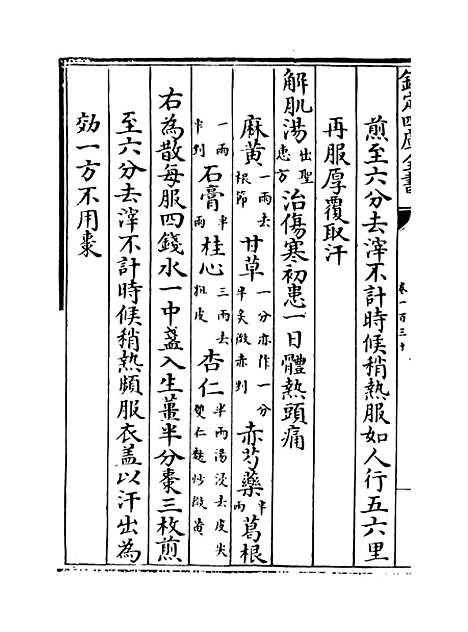 欽定四庫全書
卷一百三十
煎至六分去滓不計時候稍熱服如人行五六里
再服厚覆取汗
解肌湯出聖惠方治傷寒初患一日體熱頭痛
麻黃一兩去根節甘草一分亦作一分半炙微赤剉赤芍藥半兩葛根
一兩半剉石膏半兩桂心三兩去粗皮杏仁半兩湯浸去皮尖雙仁麩炒微黃
右為散每服四錢水一中盞入生薑半分棗三枚煎
至六分去滓不計時候稍熱頻服衣蓋以汗出為
効一方不用棗